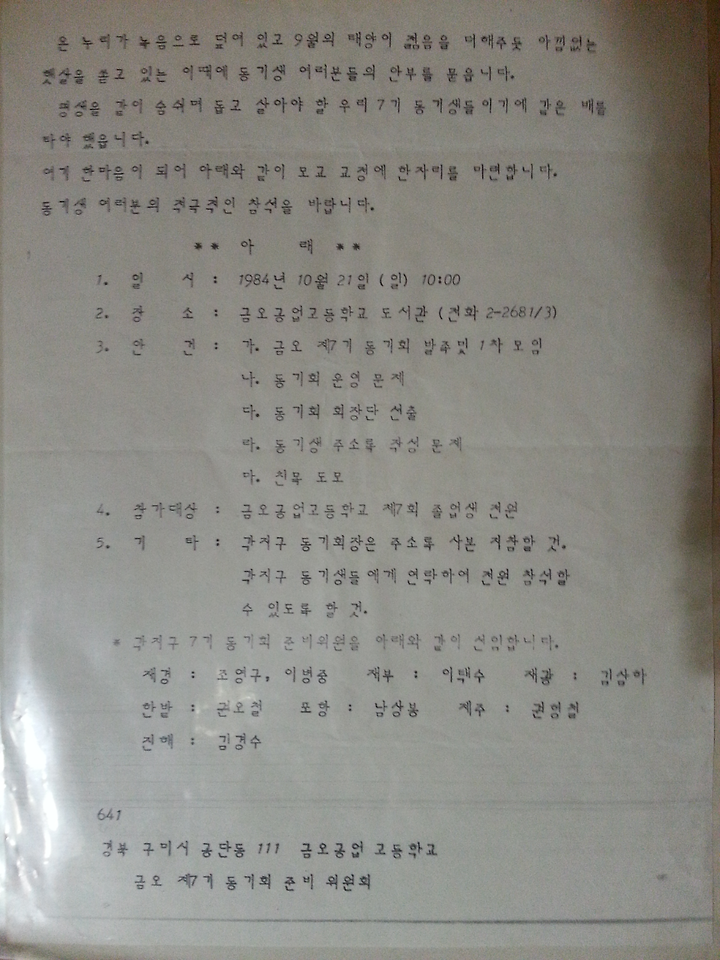 온 누리가 녹음으로 덮여 있고 9월의 태양이 젊음을 더해주듯 아낌없는
햇살을 쏟고 있는 이때에 동기생 여러분들의 안부를 묻읍니다.
평생을 같이 숨쉬며 돕고 살아야 할 우리 7기 동기생들이기에 같은 배를
타야 했읍니다.
여기 한마음이 되어 아래와 같이 모교 교정에 한자리를 마련합니다.
동기생 여러분의 적극적인 참석을 바랍니다.
** 아 래 **
1. 일 시 : 1984년 10월 21일 (일) 10:00
2. 장 소 : 금오공업고등학교 도서관 (전화 2-2681/3)
3. 안 건 : 가. 금오 제7기 동기회 발족및 1차 모임
나. 동기회 운영 문제
다. 동기회 회장단 선출
라. 동기생 주소록 작성 문제
마. 친목 도모
4. 참가대상 : 금오공업고등학교 제7회 졸업생 전원
5. 기 타 : 각지구 동기회장은 주소록 사본 지참할 것.
각지구 동기생들에게 연락하여 전원 참석할
수 있도록 할 것.
* 각지구 7기 동기회 준비위원을 아래와 같이 선임합니다.
재경 : 조영구, 이병중 재부 : 이택수 재광 : 김삼하
한밭 : 권오철 포항 : 남상봉 제주 : 권영철
진해 : 김경수
641
경북 구미시 공단동 111 금오공업 고등학교
금오 제7기 동기회 준비 위원회